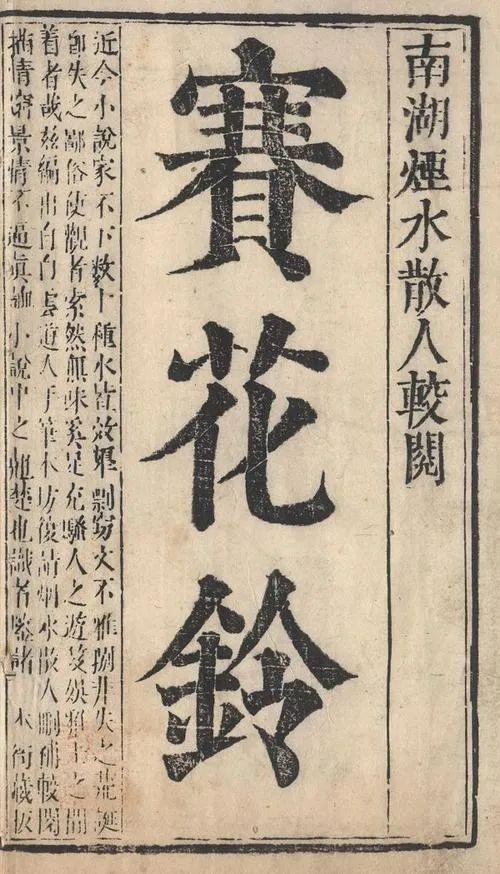 南湖煙水散人較閱
賽花鈴
近今小說家不下數十種皆效顰剽竊文不雅失之荒誕
即失之鄙俗使觀者索然無味奚足充騷人之遊笈娛士之間
着者哉茲編出自白雲道人手筆本坊復請烟水散人刪補較閱
描情窮景情不逼真小說中之翹楚也識者鑒諸 本衙藏板